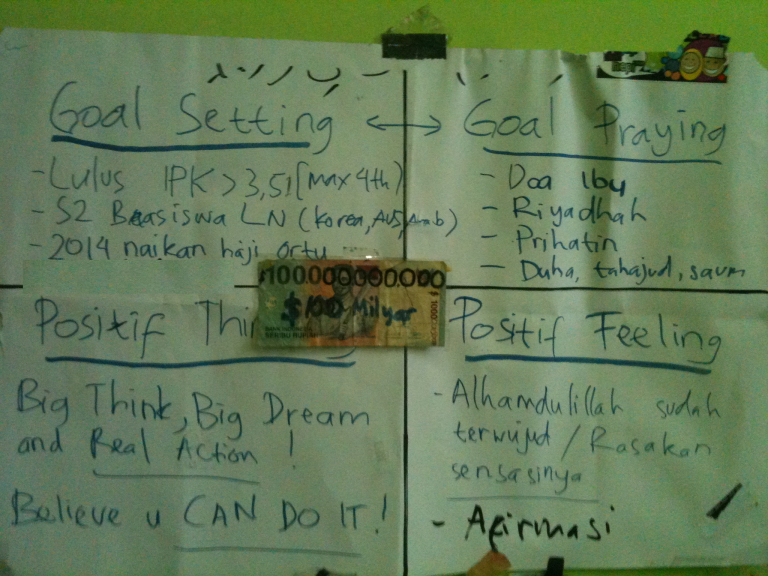 Goal Setting ↔ Goal Praying
- Lulus IPK > 3,51 [max 4th)
- S2 Beasiswa LN (Korea, AUS, Arab)
- 2014 naikan haji ortu
- Doa Ibu
- Riyadhah
- Prihatin
- Duha, tahajud, saum
$100.000.000.000
$ 100 Milyar
Positif
Big Think, Big Dream
and Real Action !
Believe u CAN DO IT!
Positif Feeling
- Alhamdulillah sudah
terwujud / Rasakan
sensasinya
- Afirmasi